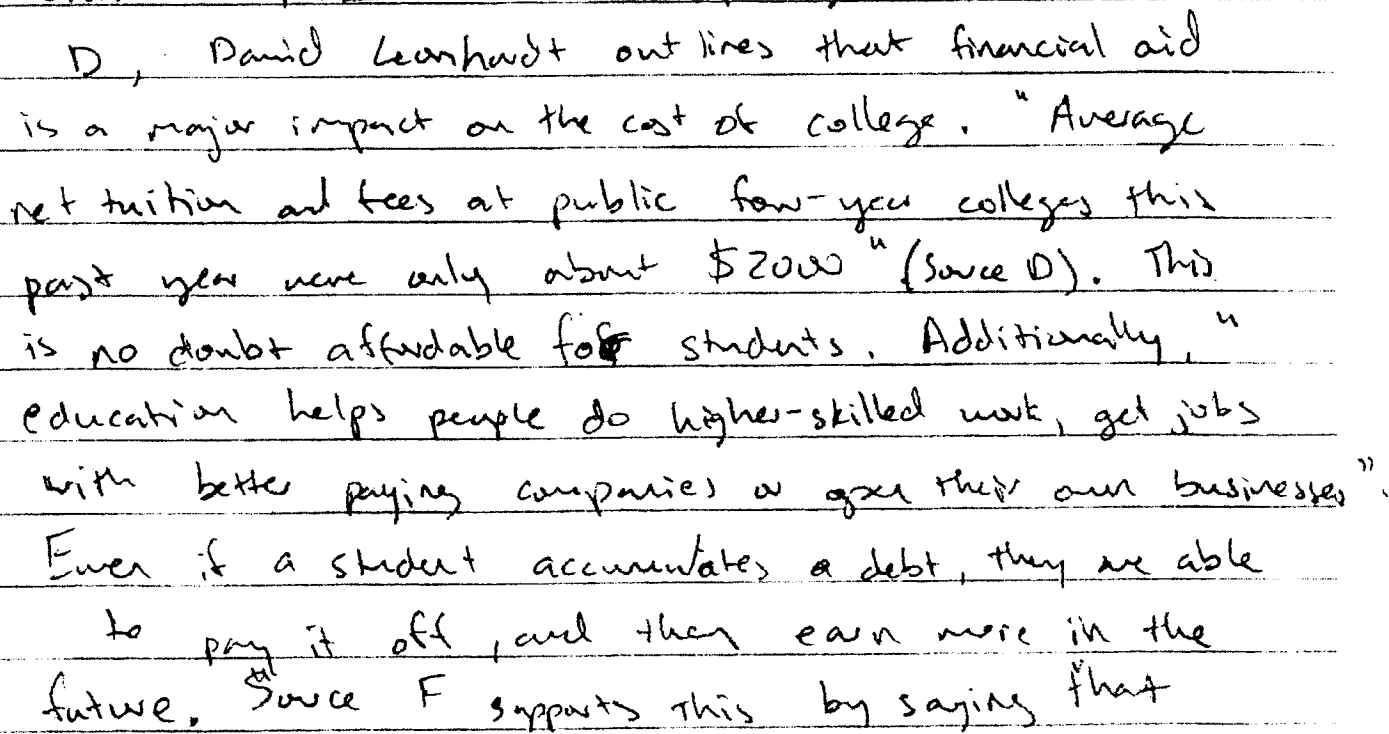 D, David Leonhardt outlines that financial aid
is a major impact on the cost of college. "Average
net tuition and fees at public four-year colleges this
past year were only about $2000" (Source D). This
is no doubt affordable for students. Additionally, "
education helps people do higher-skilled work, get jobs
with better paying companies or open their own businesses".
Even if a student accumulates a debt, they are able
to pay it off, and they earn more in the
future. Source F supports this by saying that